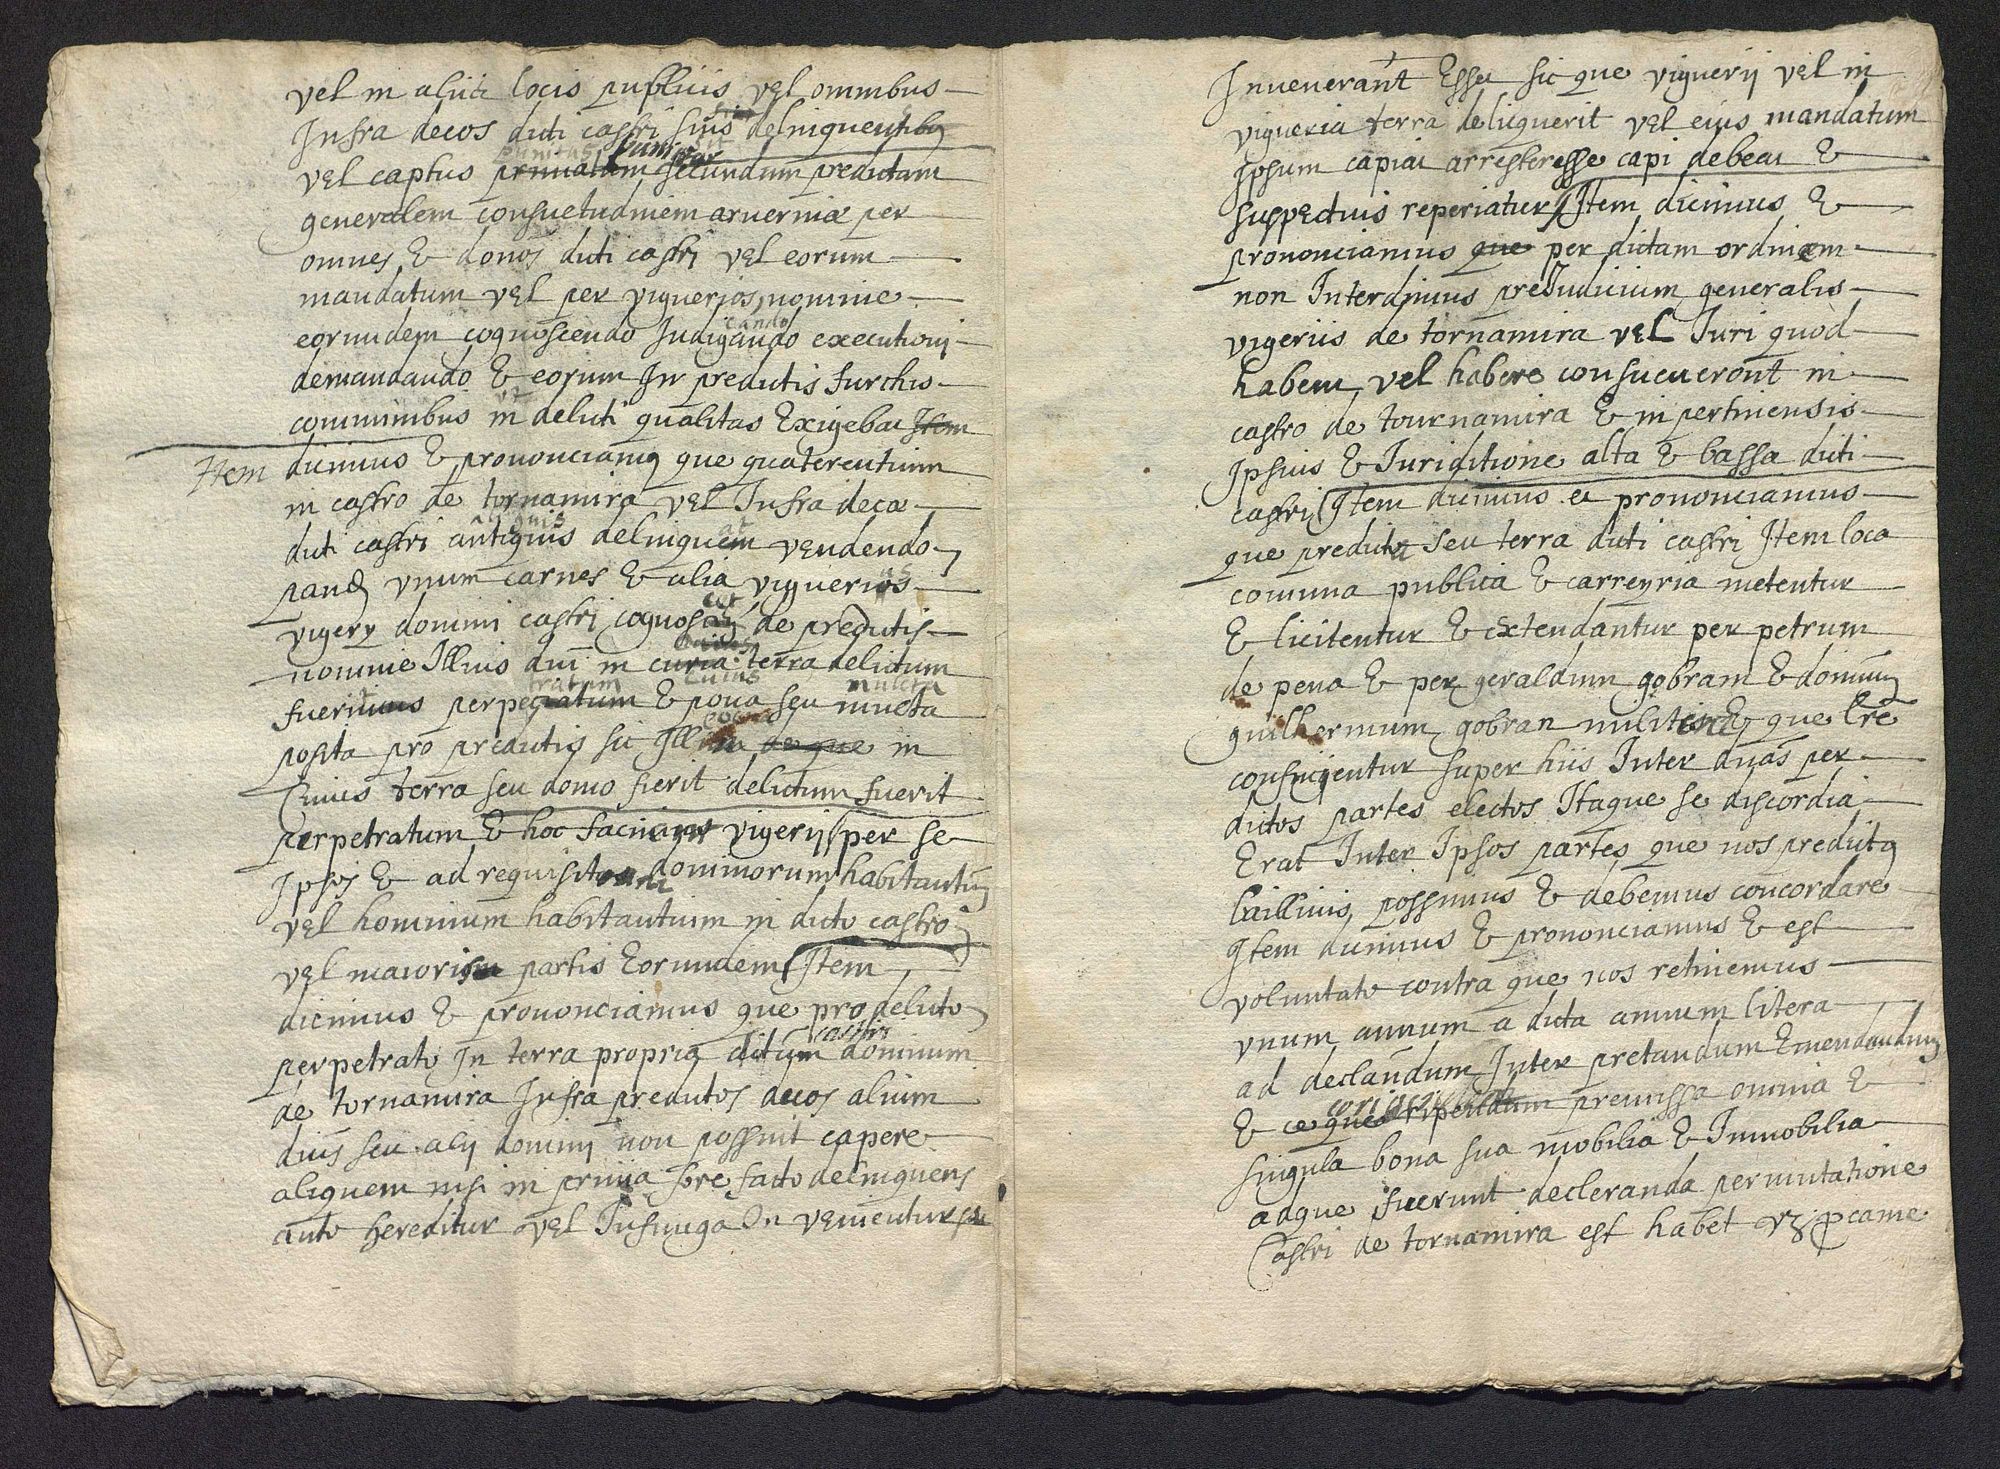 vel in aliis locis publicis vel omnibus
Infra decos dicti castri suis delniquentibus
vel captus secundum predictam
generalem consuetudniem arverniæ per
omnes & donos dicti castri vel eorum
mandatum vel per viguerios nomnie
eorumdem cognoscendo Judigando executioni
cando
demandando & eorum In predictis furchis
comunibus in delicti qualitas Exigebat Item
Item dicimus & prononciamus que quaterentium
in castro de tornamira vel Infra decæ
aliquis
dicti castri antiquis delniquem vendendo
pand vnum carnes & alia viguerios
vigery domini castri cognoscet de predictis
nomnie Illius dni in curia terra delictum
tratum cuius mulcta
fuerimus perpeciatum & pona seu mucta
posita pro predictis sic Illi de que in
Cuius terra seu domo fierit delictum fuerit
perpetratum & hoc vigerij per se
Ipsos & ad dominorum habitantium
vel hominum habitantium in dicto castro
vel maioris partis Eorumdem Item
dicimus & prononciamus que pro delicto
castri
perpetrato In terra propria dictum dominum
de tornamira Infra predictos decos alium
dius seu alij dominj non possint capere
aliquem nisi in prima fore facto delniquens
aute hereditur vel Infunga On venientur
Invenerant Esse sic que viguerij vel in
vigueria terra deliquerit vel eius mandatum
Ipsum capiat arresteresse capi debeat &
suspectuis reperiatur Item dicimus &
prononciamus que per dictam ordniem
non Interdimus preJudicium generalis
vigeriis de tornamira vel Juri quod
habent vel habere consueueront in
castro de tournamira & in pertinensis
Ipsius & Juriditione alta & bassa dicti
castri Item dicimus et prononciamus
que predicta seu terra dicti castri Item loca
comuna publica & carreyria metentur
& licitentur & extendantur per petrum
de pena & per geraldum gobram & dominum
guilhermum gobran & que lre
conficientur super hiis Inter duas per
dictos partes electos Itaque se discordia
Erat Inter Ipsos partes que nos predicta
possumus & debemus concordare
Item dicimus & prononciamus & est
voluntate contra que nos retinemus
vnum annum a data annum litera
ad declandum Inter pretandum Emendandum
& ce que premissa omnia &
singula bona sua mobilia & Immobilia
adque fuerunt decleranda permutatione
Castri de tornamira est habet